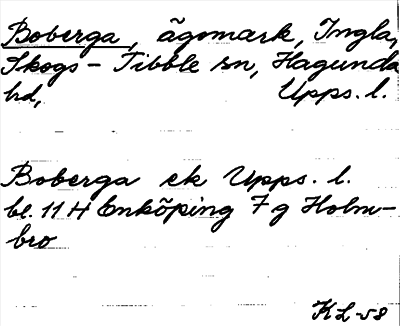 Boberga, ägomark, Ingla,
Skogs-Tibble sn, Hagunda
hd, Upps. l.
Boberga ek Upps. l.
bl. 11 H Enköping 7 g Holm-
bro
KL-58